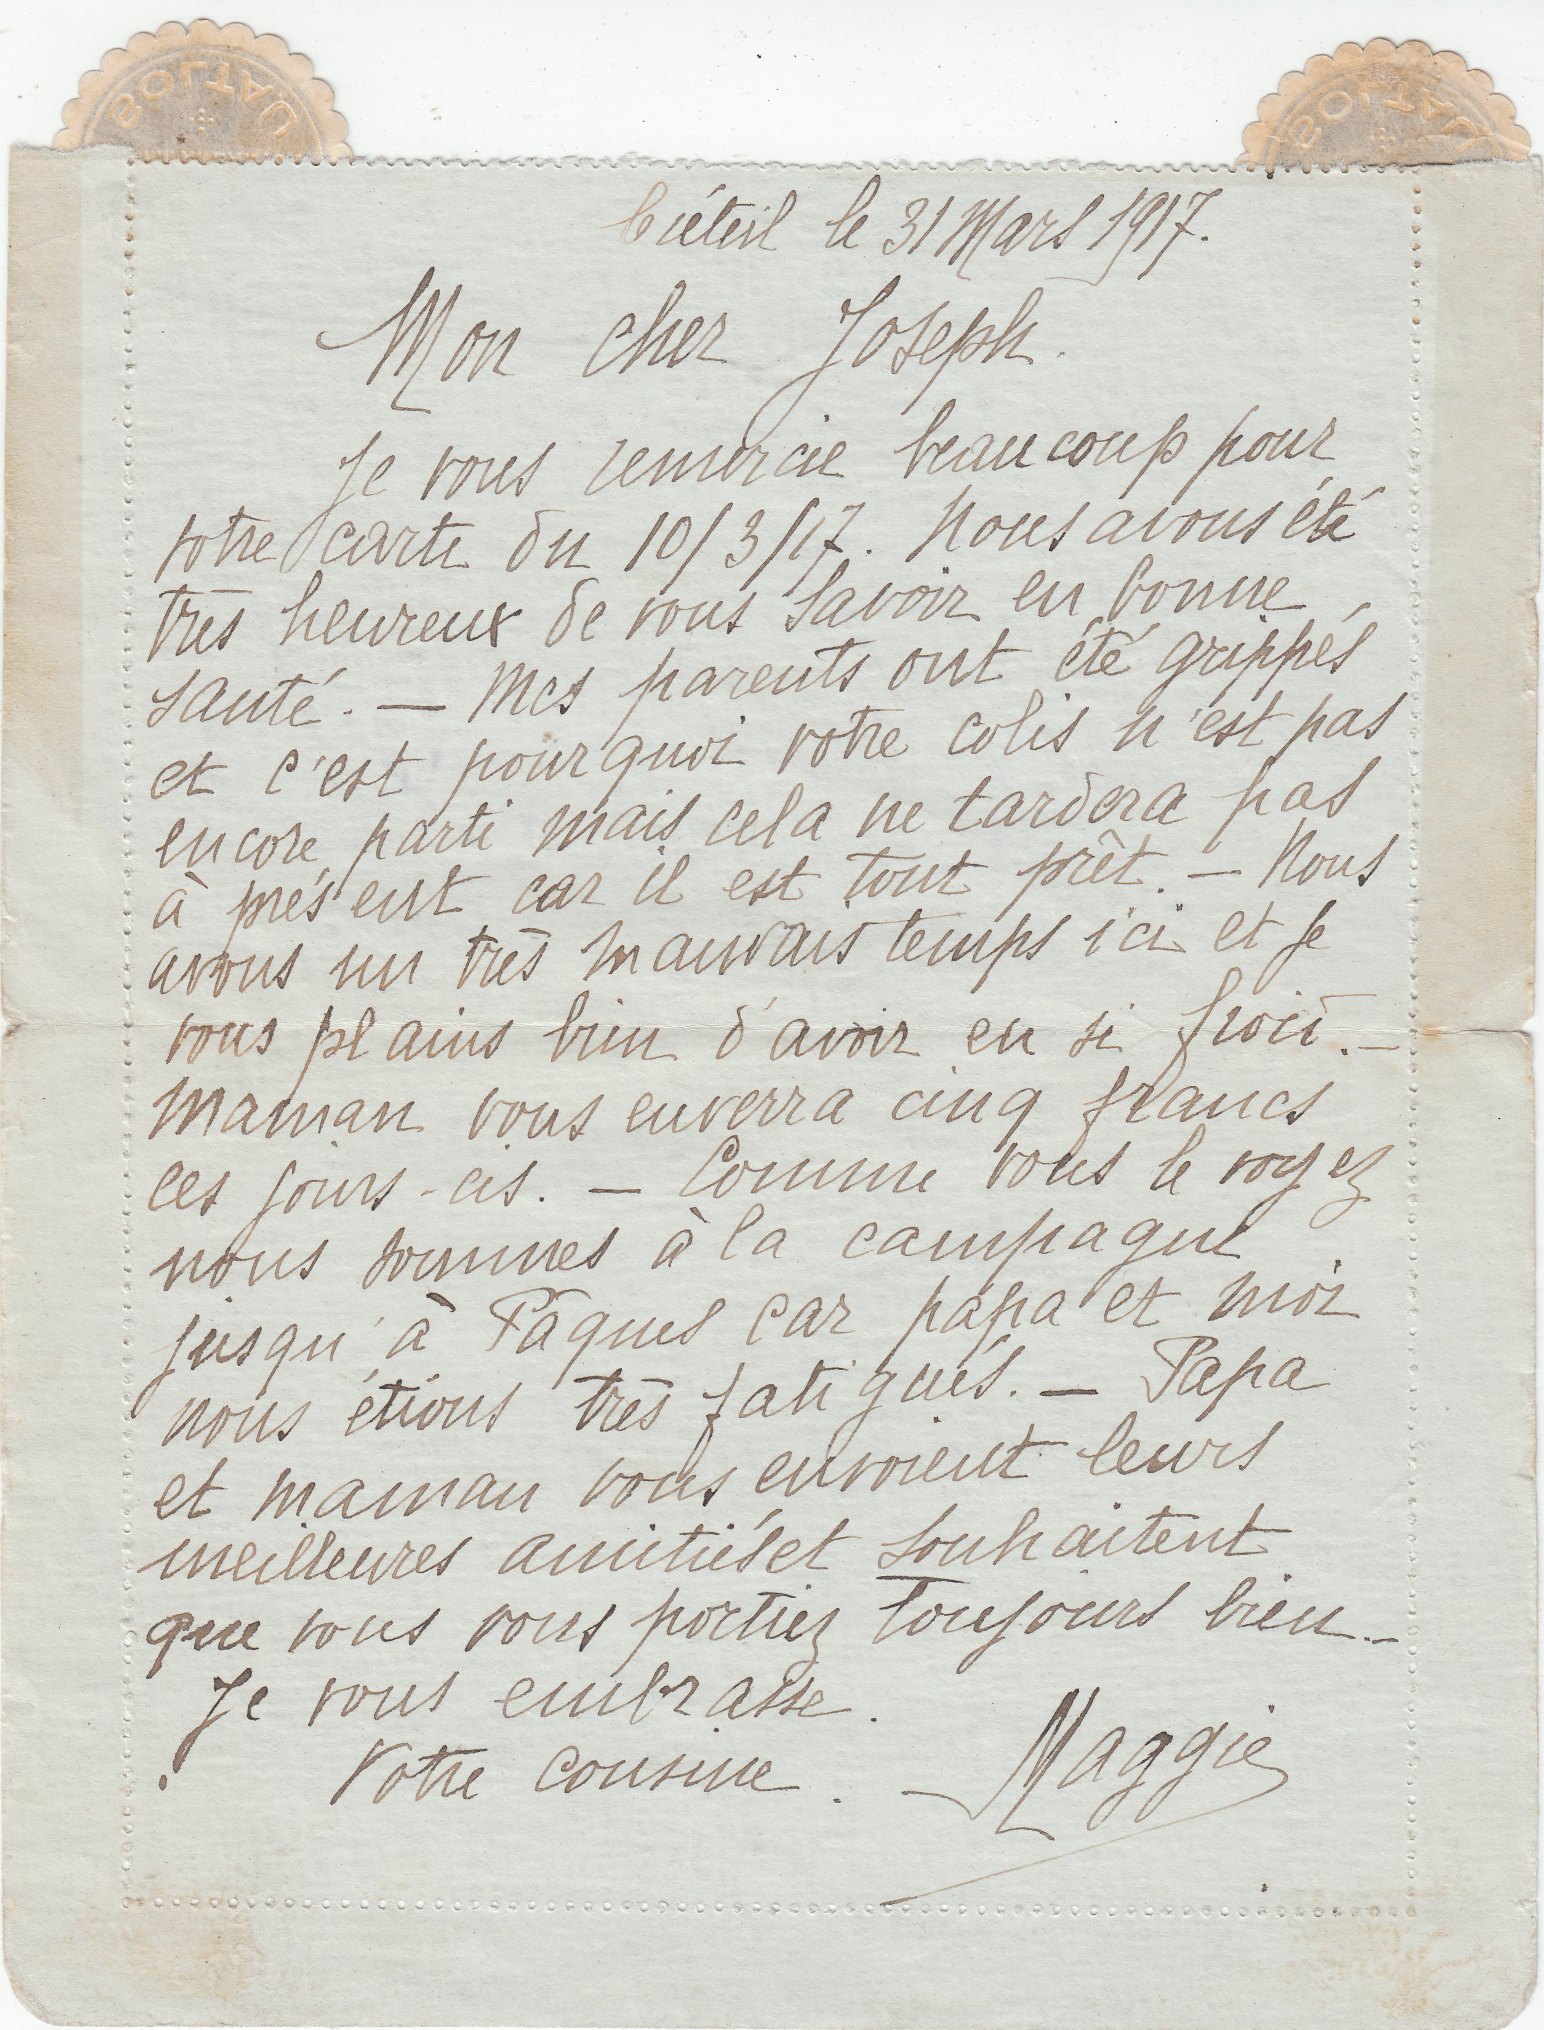 BOLTAU
BOLTAU
Créteil le 31 Mars 1917.
Mon cher Joseph.
Je vous remercie beaucoup pour
votre carte du 10/3/17. Nous avons été
très heureux de vous savoir en bonne
santé. — Mes parents ont été grippés
et c'est pourquoi votre colis n'est pas
encore parti mais cela ne tardera pas
à présent car il est tout prêt. — Nous
avons un très mauvais temps ici et je
vous plains bien d'avoir eu si froid. —
Maman vous enverra cinq francs
ces jours-cis. — Comme vous le voyez
nous sommes à la campagne
jusqu'à Pâques car papa et moi
nous étions très fatigués. — Papa
et maman vous envoient leurs
meilleures amitiés et souhaitent
que vous vous portiez toujours bien. —
Je vous embrasse.
Votre cousine. — Maggie